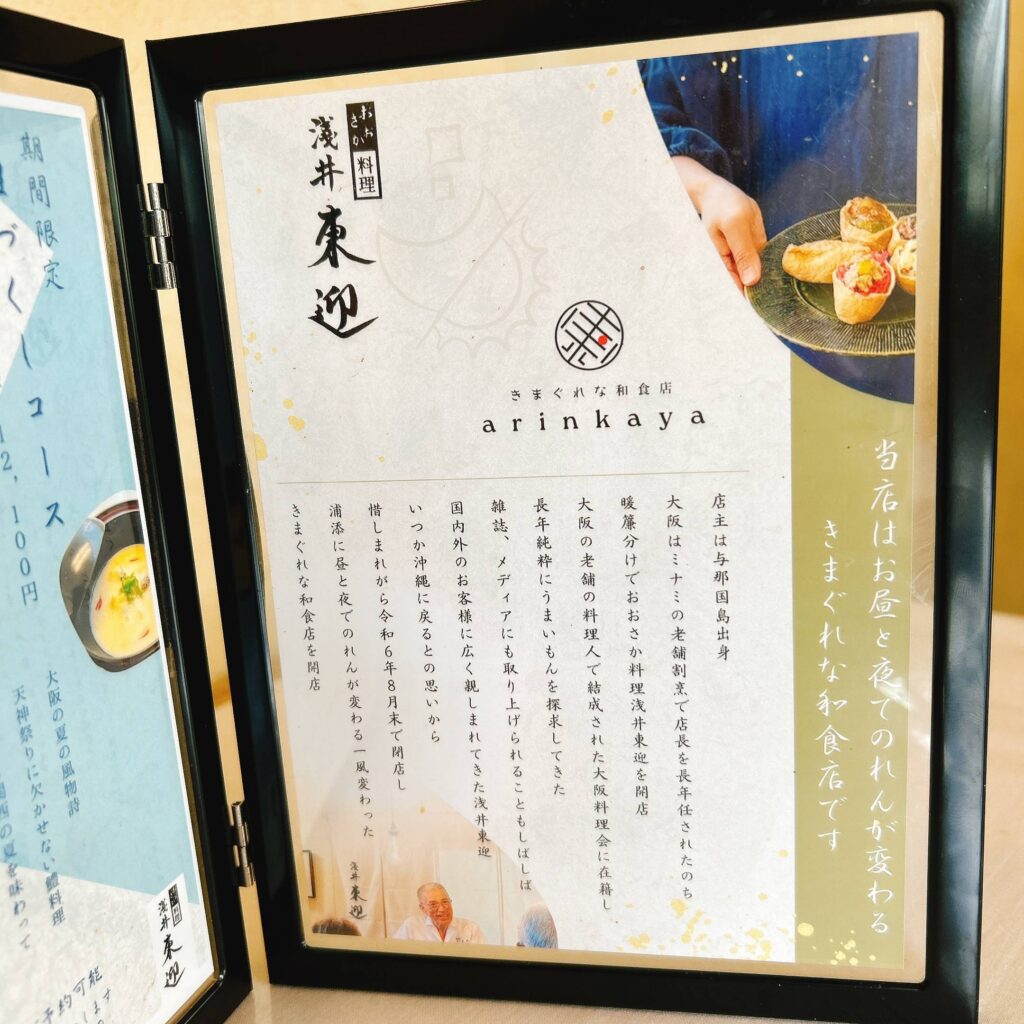 おおさか
料理
淺井東迎
きまぐれな和食店
arinkaya
当店はお昼と夜でのれんが変わる
きまぐれな和食店です
店主は与那国島出身
大阪はミナミの老舗割烹で店長を長年任されたのち
暖簾分けでおおさか料理浅井東迎を開店
大阪の老舗の料理人で結成された大阪料理会に在籍し
長年純粋にうまいもんを探求してきた
雑誌、メディアにも取り上げられることもしばしば
国内外のお客様に広く親しまれてきた浅井東迎
いつか沖縄に戻るとの思いから
惜しまれがら令和6年8月末で閉店し
浦添に昼と夜でのれんが変わる一風変わった
きまぐれな和食店を開店
淺井東迎
期間限定
づくしコース
12,100円
大阪の夏の風物詩
天神祭りに欠かせない鱧料理
関西の夏を味わって
料理
淺井東迎
予約可能
します